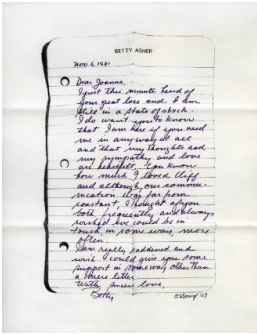 BETTY ASHER
Nov. 6, 198
Dear Joanna,
I just this minute heard of
your great loss and I am
still in a state of shock.
I do want you to know
that I am here if you need
me in any way at all
and that my thoughts and
my sympathy and love
are heartfelt. You know
how much I loved Cliff
and although our commu-
nication was far from
constant, I thought of you
both frequently and always
wished we could be in
touch in some way more
often.
I am really saddened and
wish I could give you some
support in some way other than
a mere letter.
With sincere love,
Betty